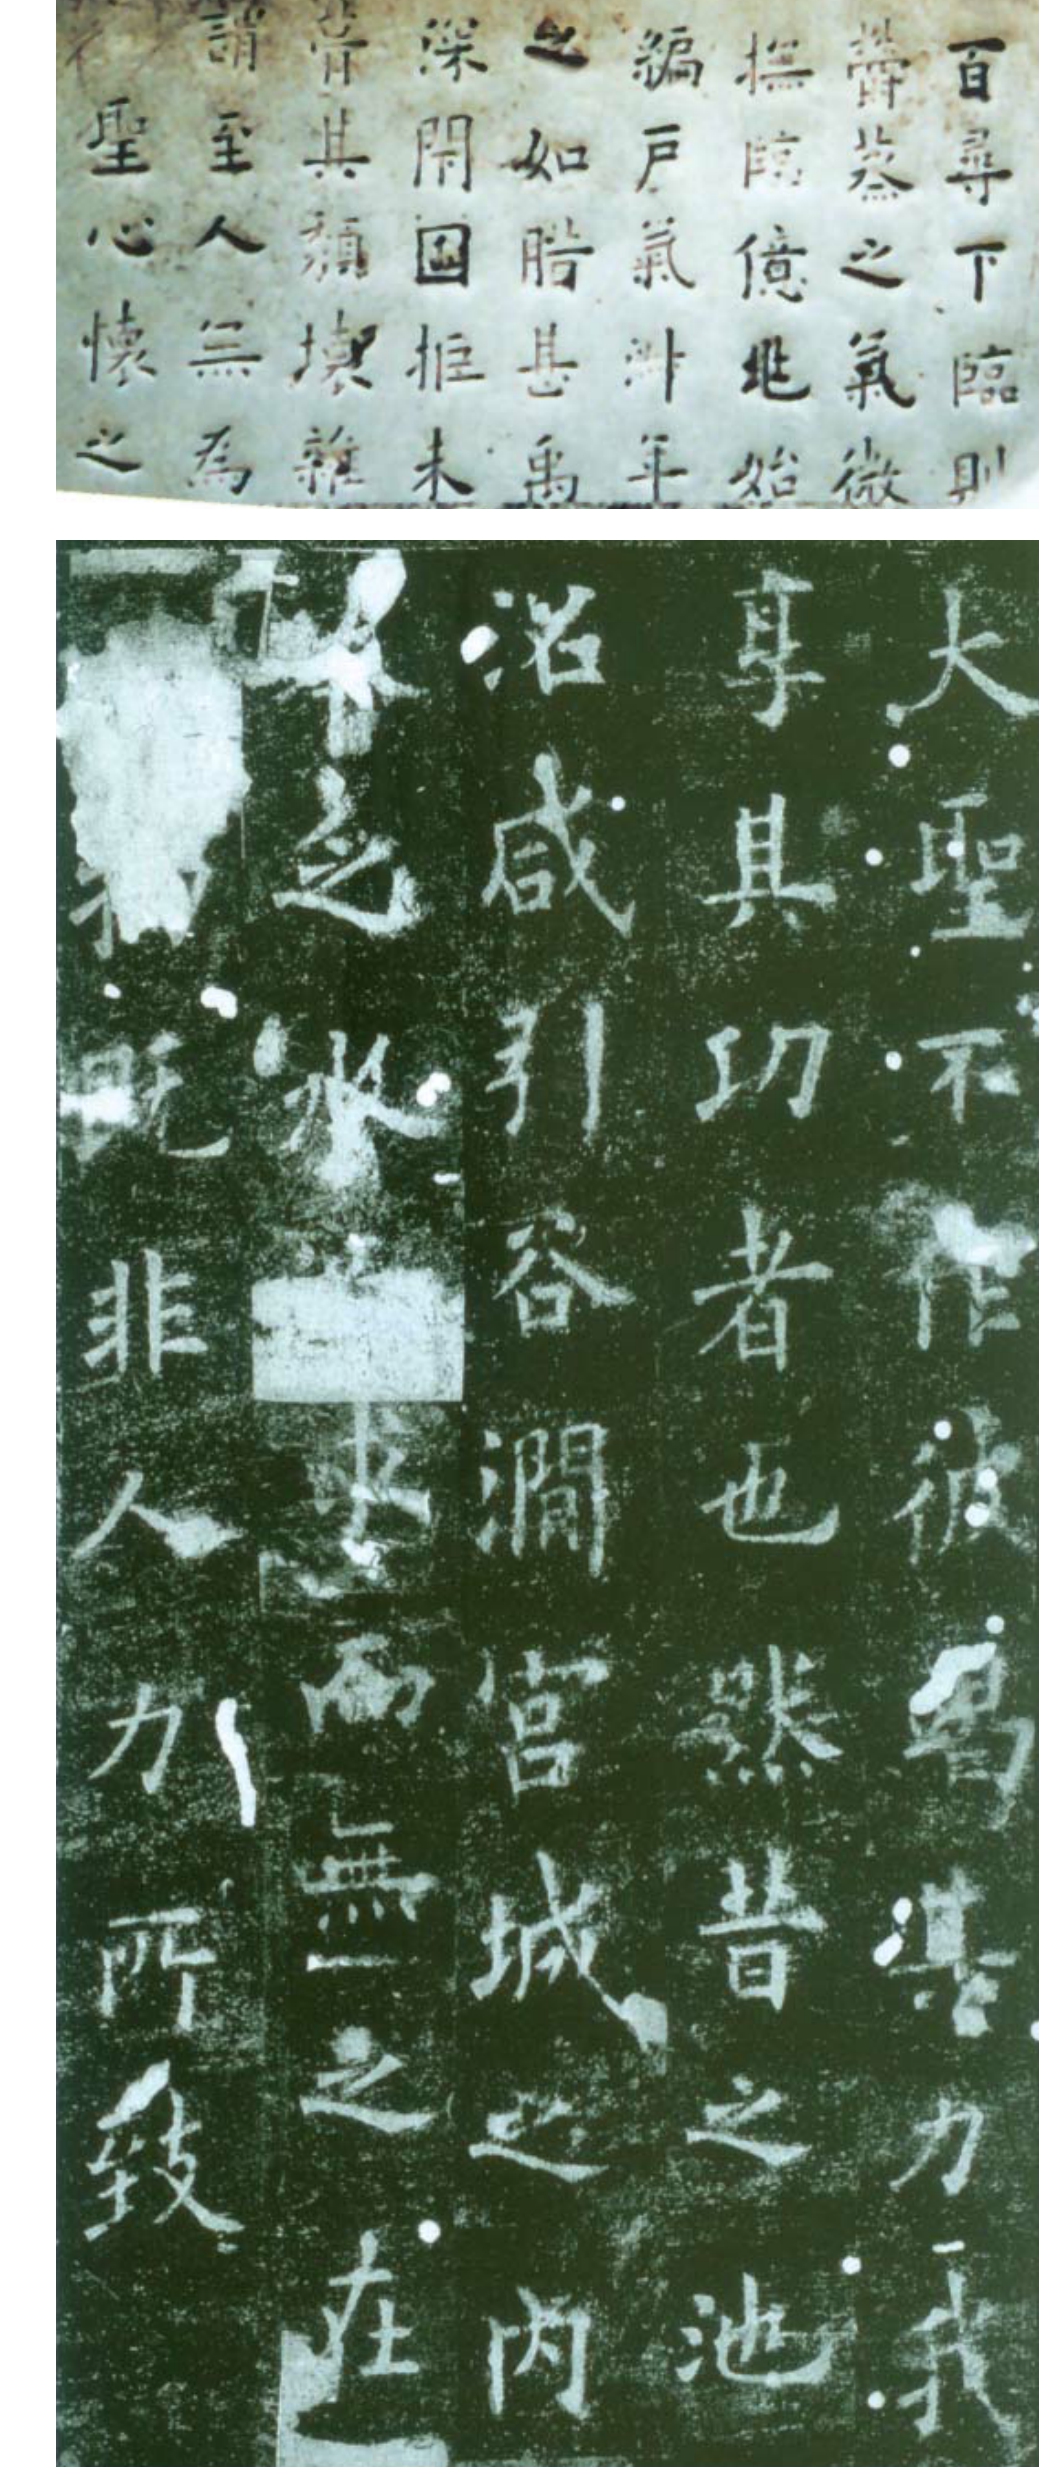 百尋下臨則
鬱蒸之氣微
撫臨億兆始
編戶氣淑年
之如腊甚禹
深閉固拒未
葺其頹壞雜
謂至人無為
聖心懷之
大聖不作彼竭其力我
享其功者也然昔之池
沼咸引谷澗宮城之內
本乏水求而無之在
物既非人力所致